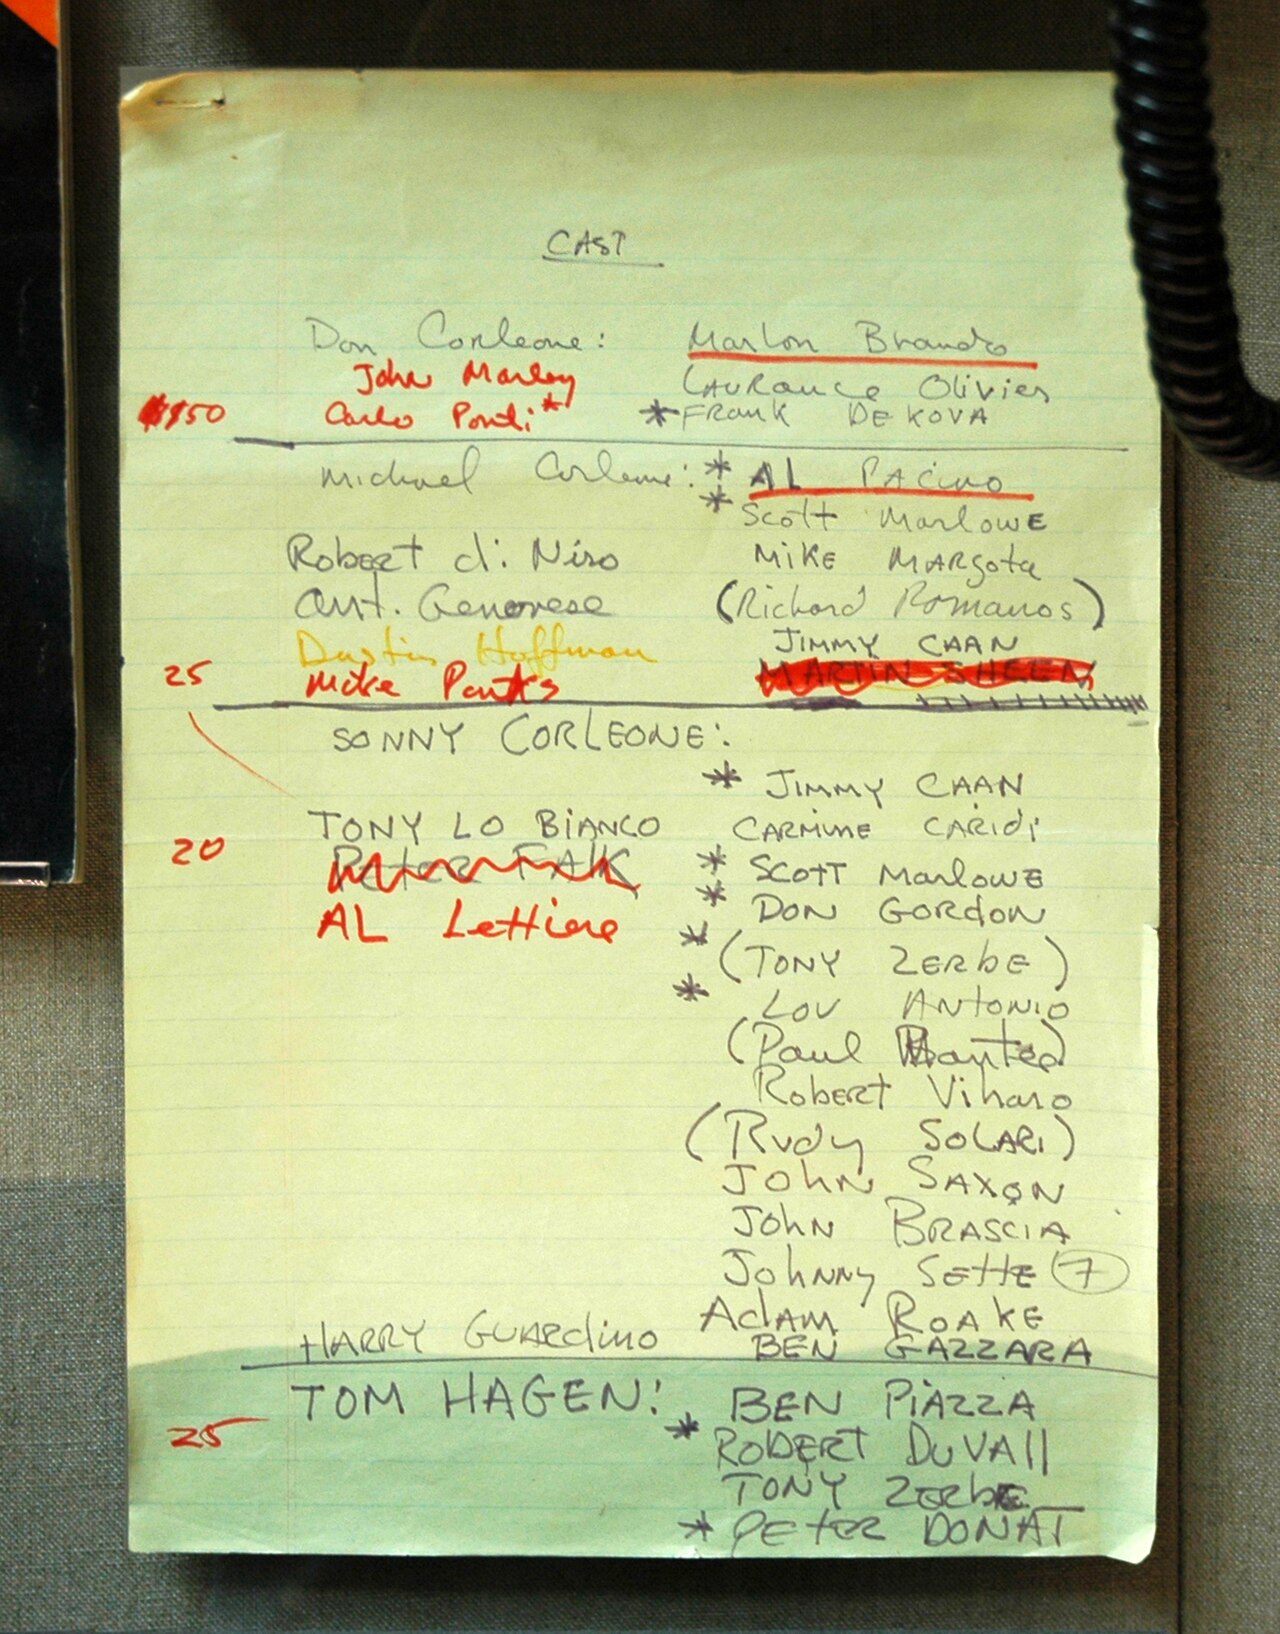 CAST
Don Corleone: Marlon Brando
John Marley LAURance Olivier
$150 Carlo Ponti* *FRANK DE KOVA
Michael Corleone: * AL PACino
* Scott MarlowE
Robert di Niro MiKE MARgota
Ant. Genovese (Richard Romanos)
Dustin Hoffman JIMMY CAAN
25 Mike Parks MARTIN SHEEN
SONNY CORLEONE:
* JIMMY CAAN
TONY LO BiANCO CARMINE CARIDi
20 Peter FAlK * SCOTT MarlowE
AL Lettiere * DON GORdON
* (TONY ZERbE)
* LOU ANTONIO
(Paul)
RobERT Viharo
(Rudy SOLARI)
JOhN SAXON
JOHN BRASCIA
JohNNy SETTE (7)
AdAM ROAKE
HARRY GUARdino BEN GAZZARA
TOM HAGEN: BEN PiAZZA
25 * ROBERT DuVAll
TONY ZERbE
* PETER DONAT